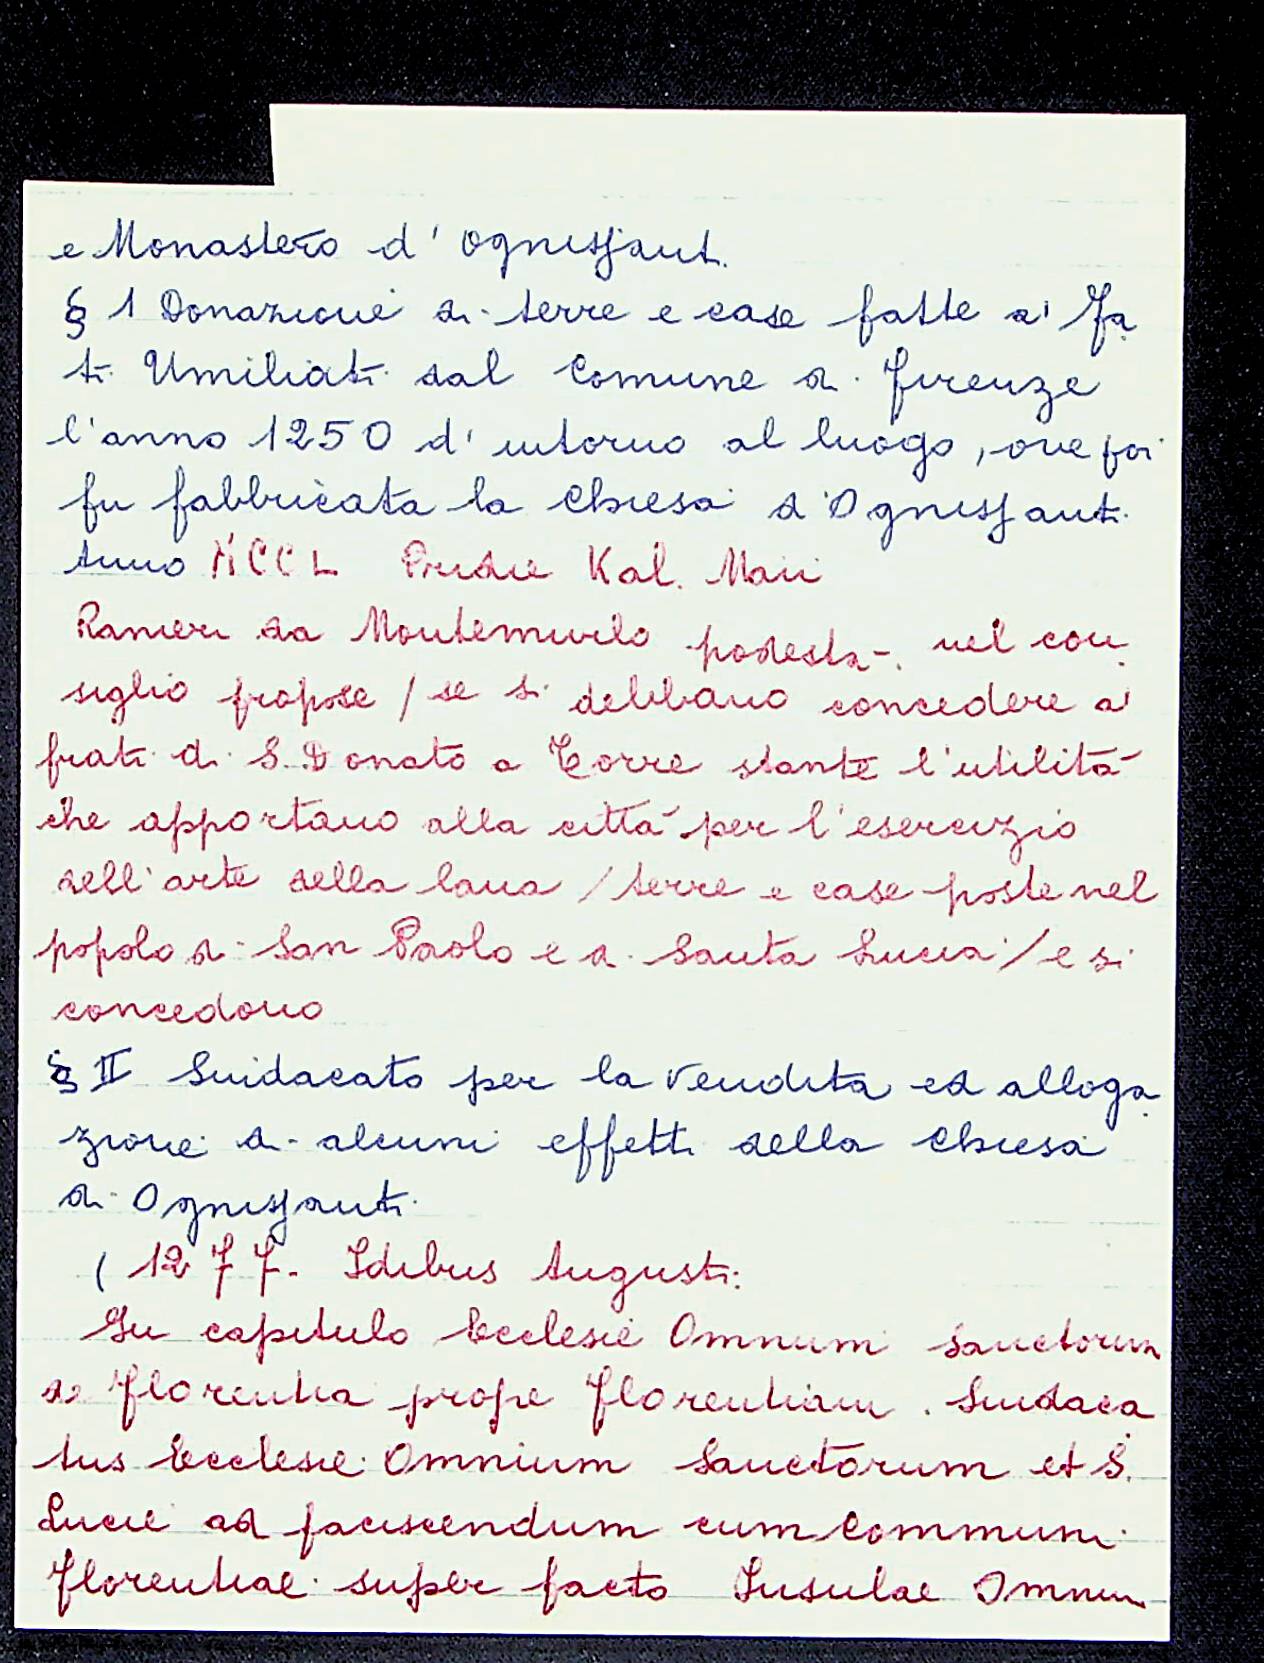 e Monastero d' Ognissanti.
§ 1 Donazione di terre e case fatte a' Fra
ti Umiliati dal Comune di Firenze
l'anno 1250 d' intorno al luogo, ove poi
fu fabbricata la Chiesa d'Ognissanti.
Anno MCCL Pridie Kal. Maii
Ranieri da Montemurlo podestà nel con
siglio propose / se si debbano concedere a'
frati di S. Donato a Torre stante l'utilità
che apportano alla città per l'esercizio
dell'arte della lana / terre e case poste nel
popolo di San Paolo e di Santa Lucia / e si
concedono
§ II Sindacato per la vendita ed alloga
zione di alcuni effetti della Chiesa
di Ognissanti.
( 1277. Idibus Augusti:
In capitulo Ecclesie Omnium Sanctorum
de Florentia prope Florentiam. Sindaca
tus Ecclesie Omnium Sanctorum et S.
Lucie ad paciscendum cum Communi
Florentiae super facto Insulae Omnium